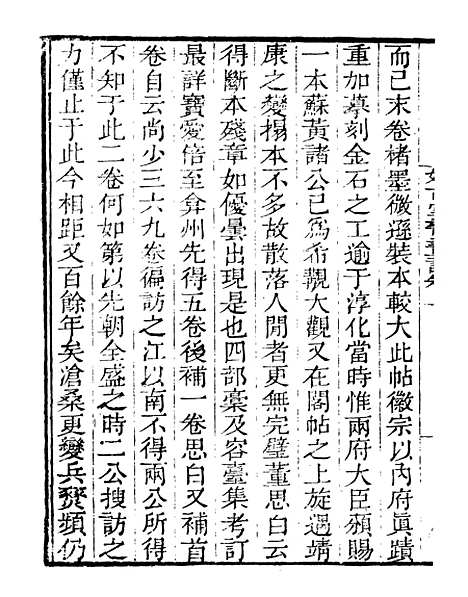 而已末卷楮墨微遜裝本較大此帖徽宗以內府眞蹟
重加摹刻金石之工逾于淳化當時惟兩府大臣頒賜
一本蘇黃諸公已爲希覯大觀又在閣帖之上旋遇靖
康之變搨本不多故散落人閒者更無完璧董思白云
得斷本殘章如優曇出現是也四部稾及容臺集考訂
最詳寶愛倍至弇州先得五卷後補一卷思白又補首
卷自云尚少三六九卷徧訪之江以南不得兩公所得
不知于此二卷何如第以先朝全盛之時二公搜訪之
力僅止于此今相距又百餘年矣滄桑更變兵燹頻仍